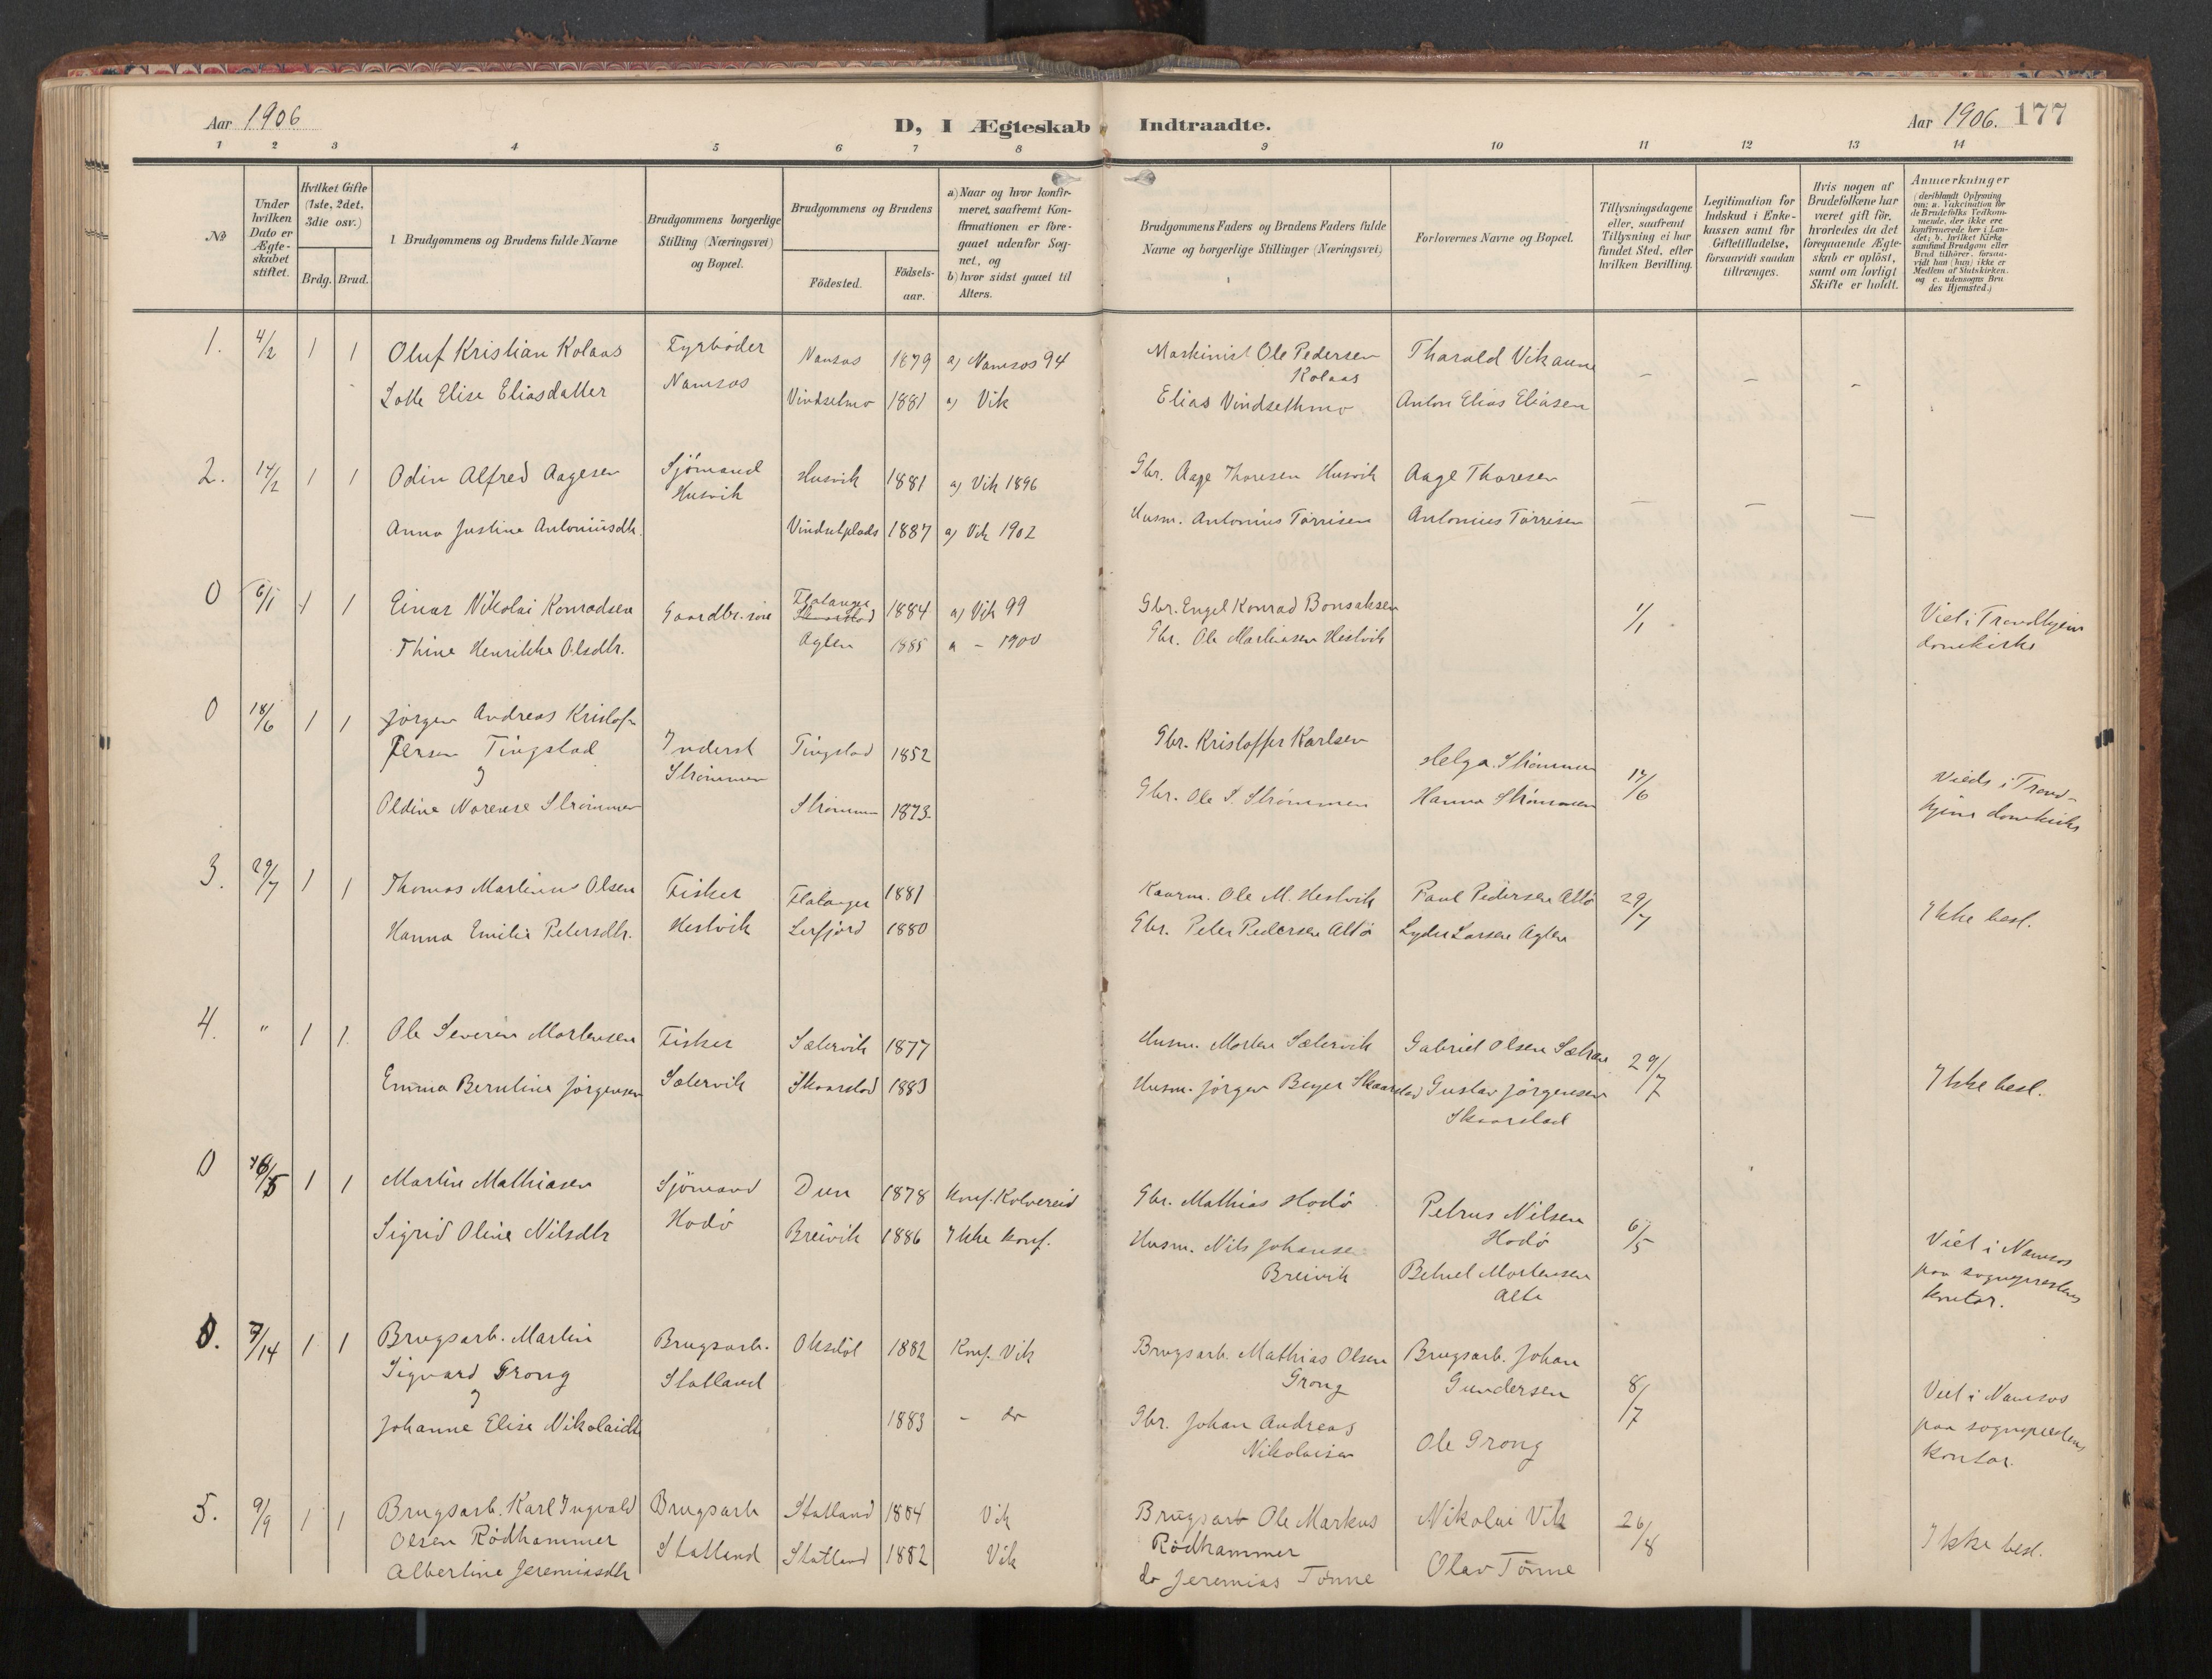 Aar 1906
D, I Ægteskab Indtraadte.
Aar 1906. 177
1 2 3 4 5 6 7 8 9 10 11 12 13 14
№
Under hvilken Dato er Ægteskabet stiftet.
Hvilket Gifte (1ste, 2det, 3die osv.)
Brdg. Brud.
Brudgommens og Brudens fulde Navne
Brudgommens borgerlige Stilling (Næringsvei) og Bopæl.
Brudgommens og Brudens
Födested. Födsels-aar.
a) Naar og hvor konfirmeret, saafremt Konfirmationen er foregaaet udenfor Sognet, og
b) hvor sidst gaaet til Alters.
Brudgommens Faders og Brudens Faders fulde Navne og borgerlige Stillinger (Næringsvei)
Forlovernes Navne og Bopæl.
Tillysningsdagene eller, saafremt Tillysning ei har fundet Sted, efter hvilken Bevilling.
Legitimation for Indskud i Enkekassen samt for Giftetilladelse, forsaavidt saadan tiltrænges.
Hvis nogen af Brudefolkene har været gift för, hvorledes da det foregaaende Ægteskab er oplöst, samt om lovligt Skifte er holdt.
Anmerkninger
(deriblandt Oplysning om: a. Vakcination for de Brudefolks Vedkommende, der ikke ere konfirmerede her i Landet; b. hvilket Kirkesamfund Brudgom eller Brud tilhörer, forsaavidt han (hun) ikke er Medlem af Statskirken, og c. udensogns Brudes Hjemsted.)
1. 4/2 1 1 Oluf Kristian Kolaas Fyrbøder Namsos 1879 a) Namsos 94 Maskinist Ole Pedersen Kolaas Tharald Vikaune - - -
Lotte Elise Eliasdatter Namsos Vindsetmo 1881 a) Vik Elias Vindsethmo Anton Elias Eliasen
2. 14/2 1 1 Odin Alfred Aagesen Sjömand Husvik Husvik 1881 a) Vik 1896 Gbr. Aage Thoresen Husvik Aage Thoresen - - -
Anna Justine Antoniusdtr. Vindsetplads 1887 a) Vik 1902 Husm. Antonius Tørrisen Antonius Tørrisen
0 6/1 1 1 Einar Nikolai Konradsen Gaardbr. Flatanger 1884 a) Vik 99 Gbr. Engel Konrad Bonsaksen 1/1 Viet i Trondhjem
Thine Henrikke Olsdtr. Aglen 1885 a - 1900 Gbr. Ole Martinsen Hestvik domkirke
0 18/6 1 1 Jørgen Andreas Kristof-
fersen Tingstad Inderst Tingstad 1852 Gbr. Kristoffer Karlsen
og Strømmen Helga Strømmen 17/6 Viede i Trond-
Oldine Norense Strømmen Strømmen 1873. Gbr. Ole S. Strømmen Hanna Strømmen hjems domkirke
3. 29/7 1 1 Thomas Martinus Olsen Fisker Flatanger 1881 Kaarm. Ole M. Hestvik Paul Pedersen Altø 29/7
Hanna Emilie Petersdtr. Hestvik Lerfjord 1880 Gbr. Peter Pedersen Altø Lyder Larsen Aglen Ikke besl.
4. " 1 1 Ole Severin Mortensen Fisker Sætervik 1877 Husm. Morten Sætervik Gabriel Olsen 29/7
Emma Berntine Jørgensen Sætervik Skaarstad 1883 Husm. Jørgen Beyer Skaarstad Gustav Jørgensen Ikke besl.
Skaarstad
0 6/5 1 1 Martin Mathiasen Sjömand Dun 1878 konf. Kolvereid Gbr. Mathias Hodø Petrus Nilsen
Sigrid Oline Nilsdtr Hodø Breivik 1886 Ikke konf. Husm. Nils Johansen Hodø 6/5 Viet i Namsos
Breivik Mortensen paa sogneprestens
kontor.
0. 7/14 1 1 Brugsarb. Martin Brugsarb. Oksdöl 1882 Konf. Vik Brugsarb. Mathias Olsen Brugsarb. Johan
Sigvard Grong Statland Grong Gundersen 8/7 Viet i Namsos
og
Johanne Elise Nikolaidtr 1883 - do Gbr. Johan Andreas paa sogneprestens
Nikolaisen Ole Grong kontor.
5. 9/9 1 1 Brugsarb. Karl Ingvald Brugsarb Statland Vik Brugsarb Ole Markus Nikolai Vik 26/8
Olsen Rödhammer Rödhammer
Albertine Jeremiasdtr Statland Statland 1882 Vik do Jeremias Tönne Olav Tönne Ikke besl.